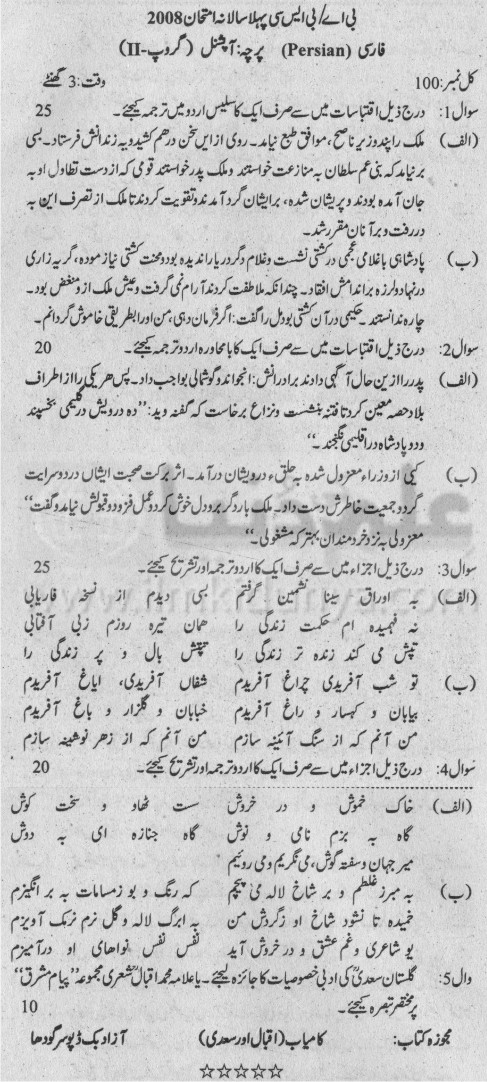 بی اے/بی ایس سی پہلا سالانہ امتحان 2008
فارسی (Persian) پرچہ: آپشنل (گروپ-II)
کل نمبر: 100 وقت: 3 گھنٹے
سوال 1: درج ذیل اقتباسات میں سے صرف ایک کا سلیس اردو میں ترجمہ کیجئے۔ 25
(الف) ملک را پند وزیر ناصح، موافق طبع نیامد۔ روی از ایں سخن درہم کشید و بہ زندانش فرستاد۔ بسی
بر نیامد کہ بنی عم سلطان بہ منازعت خواستند و ملک پدر خواستند قومی کہ از دست تطاول او بہ
جان آمدہ بودند و پریشان شدہ، بر ایشان گرد آمدند و تقویت کردند تا ملک از تصرف این بہ
در رفت و بر آنان مقرر شد۔
(ب) پادشاہی با غلامی عجمی در کشتی نشست و غلام دگر دریا را ندیدہ بود و محنت کشتی نیازمودہ، گریہ زاری
در نہاد و لرزہ بر اندامش افتاد۔ چندانکہ ملاطفت کردند آرام نمی گرفت و عیش ملک ازو منغض بود۔
چارہ ندانستند۔ حکیمی در آن کشتی بود ملک را گفت: اگر فرمان دہی، من او را بطریقی خاموش گردانم۔
سوال 2: درج ذیل اقتباسات میں سے صرف ایک کا با محاورہ اردو ترجمہ کیجئے۔ 20
(الف) پدر را ازین حال آگہی دادند برادرانش: انجواند و گوشمالی بواجب داد۔ پس ہر یکی را از اطراف
بلاد حصہ معین کرد تا فتنہ بنشست و نزاع برخاست کہ گفتہ وید: ”دہ درویش در گلیمی بخسپند
و دو پادشاہ در اقلیمی نگنجند۔“
(ب) یکی از وزراء معزول شدہ بہ حلقہء درویشان در آمد۔ اثر برکت صحبت ایشاں در دو سرایت
گرد و جمعیت خاطرش دست داد۔ ملک بار دگر برو دل خوش کرد و عمل فرمود و قبولش نیامد و گفت”
معزولی بہ نزد خردمندان بہتر کہ مشغولی۔“
سوال 3: درج ذیل اجزاء میں سے صرف ایک کا اردو ترجمہ اور تشریح کیجئے۔ 25
(الف) بہ اوراق سینا نشیمن گرفتم بسی دیدم از نسخہ فاریابی
نہ فہمیدہ ام حکمت زندگی را ھمان تیرہ روزم زبی آفتابی
تپش می کند زندہ تر زندگی را تپش بال و پر زندگی را
(ب) تو شب آفریدی چراغ آفریدم سفال آفریدی، ایاغ آفریدم
بیابان و کہسار و راغ آفریدم خیابان و گلزار و باغ آفریدم
من آنم کہ از سنگ آئینہ سازم من آنم کہ از زھر نوشینہ سازم
سوال 4: درج ذیل اجزاء میں سے صرف ایک کا اردو ترجمہ اور تشریح کیجئے۔ 20
(الف) خاک خموش و در خروش ست نھاد و سخت کوش
گاہ بہ بزم نامی و نوش گاہ جنازہ ای بہ دوش
میر جہان و سفتہ گوش، می نگریم و می روئیم
(ب) بہ مبرز غلطم و بر شاخ لالہ می پیچم کہ رنگ و بو ز مسامات بہ بر انگیزم
خمیدہ تا نشود شاخ او ز گردش من بہ ابرگ لالہ و گل نرم نرمک آویزم
یو شاعری و غم عشق و در خروش آید نفس نفس نواھای او در آمیزم
وال 5: گلستان سعدیؒ کی ادبی خصوصیات کا جائزہ لیجئے۔ یا علامہ محمد اقبالؒ شعری مجموعہ ”پیام مشرق“
پر مختصر تبصرہ کیجئے۔ 10
مجوزہ کتاب: کامیاب (اقبال اور سعدی) آزاد بک ڈپو سرگودھا
☆☆☆☆☆